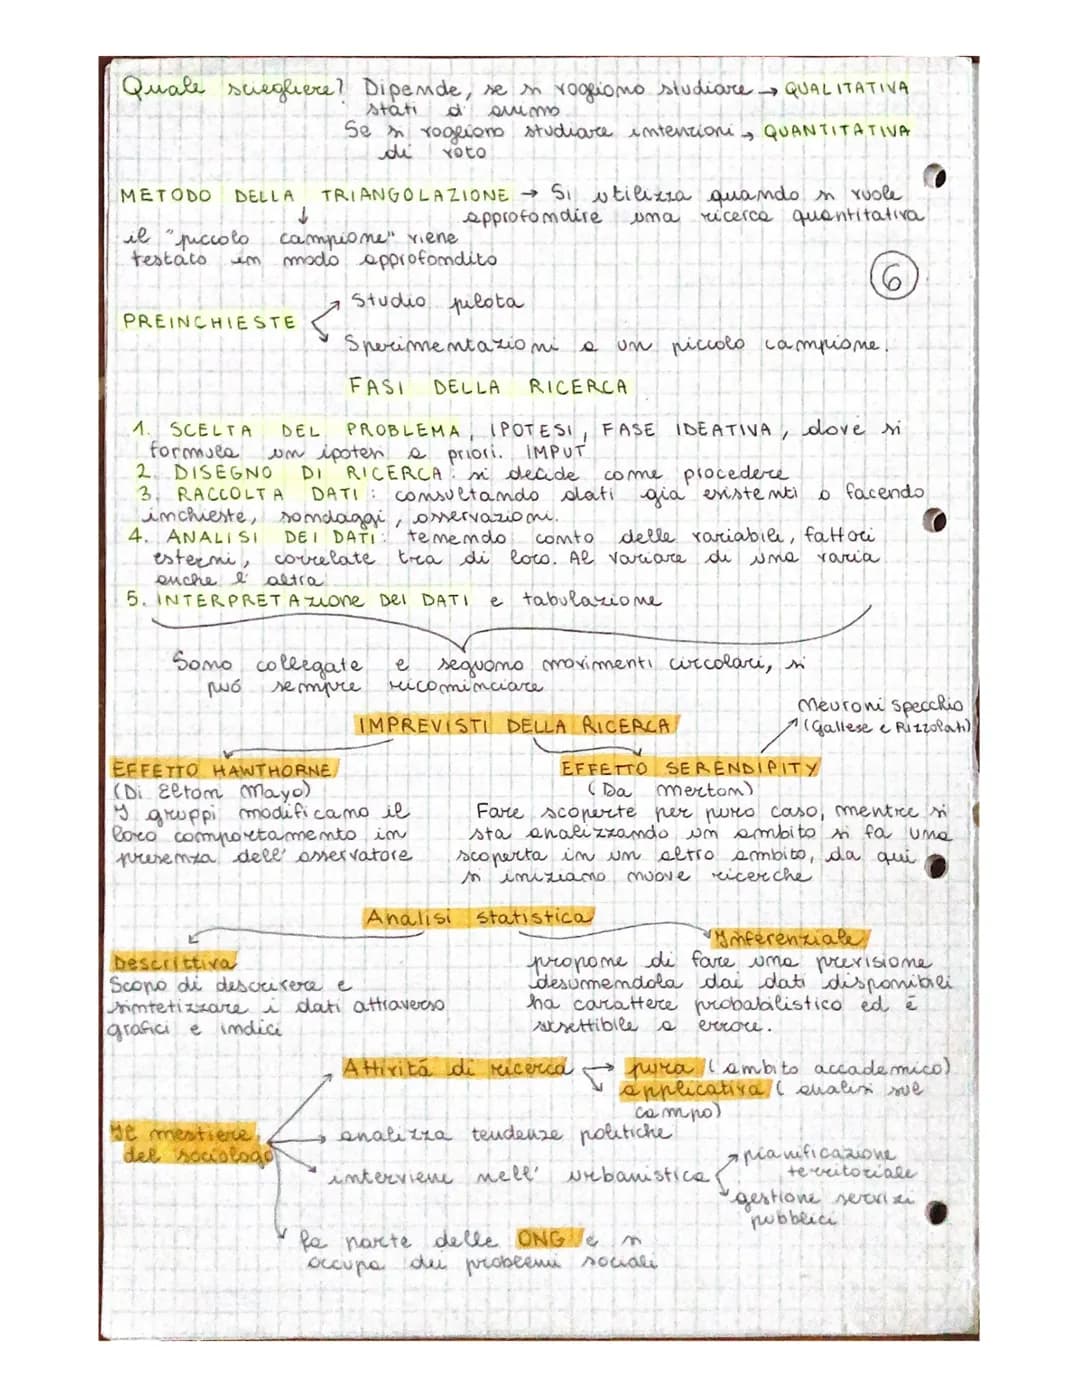 Quale sciegliere? Dipende, se si vogliono studiare → QUALITATIVA
stati d'animo
Se si vogliono studiare intenzioni → QUANTITATIVA
di voto
METODO DELLA TRIANGOLAZIONE → Si utilizza quando si vuole
approfondire una ricerca quantitativa
il "piccolo campione" viene
testato in modo approfondito
6
Studio pilota
PREINCHIESTE
Sperimentazioni a un piccolo campione.
FASI DELLA RICERCA
1. SCELTA DEL PROBLEMA, IPOTESI, FASE IDEATIVA, dove si
formula un ipotesi a priori. IMPUT
2. DISEGNO DI RICERCA: si decide come procedere
3. RACCOLTA DATI: consultando dati gia esistenti o facendo
inchieste, sondaggi, osservazioni.
4. ANALISI DEI DATI: tenendo conto delle variabili, fattori
esterni, correlate tra di loro. Al variare di una varia
anche l'altra
5. INTERPRETAZIONE DEI DATI e tabulazione
Sono collegate e seguono movimenti circolari, si
puó sempre ricominciare
Neuroni specchio
(Gallese e Rizzolati)
IMPREVISTI DELLA RICERCA
EFFETTO HAWTHORNE
EFFETTO SERENDIPITY
(Di Elton Mayo)
(Da Merton)
I gruppi modificano il
loro comportamento in
presenza dell'osservatore
Fare scoperte per puro caso, mentre si
sta analizzando un ambito si fa una
scoperta in un altro ambito, da qui
si iniziano nuove ricerche
Analisi statistica
Descrittiva
Scopo di descrivere e
sintetizzare i dati attraverso
grafici e indici
Inferenziale
propone di fare una previsione
desumendola dai dati disponibili
ha carattere probabilistico ed é
susettibile a errore.
Attivitá di ricerca → pura (ambito accademico)
applicativa (analisi sul
campo)
Il mestiere
del sociologo
analizza tendenze politiche
interviene nell'urbanistica
pianificazione
territoriale
gestione servizi
pubblici
fa parte delle ONG e si
occupa dei problemi sociali